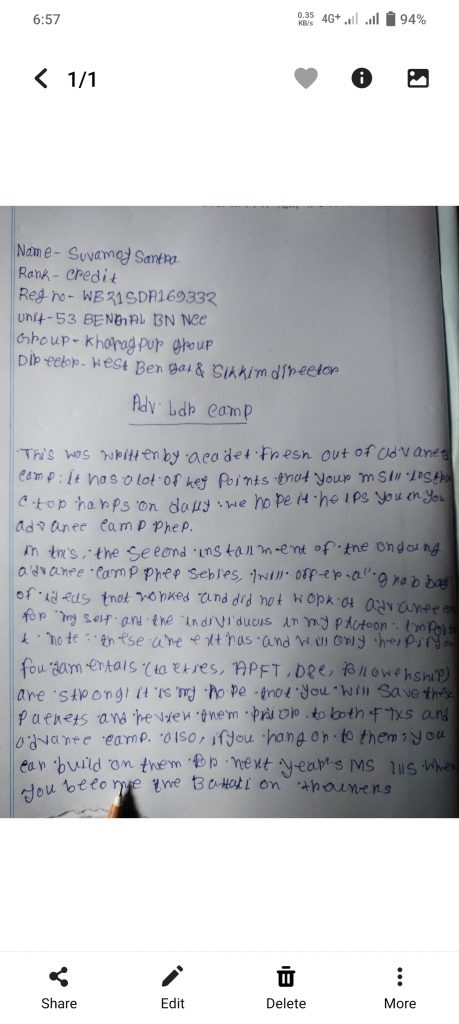 6:57
0.35 KB/s 4G+ 94%
1/1
Name- Suvamoy Santra
Rank- Credit
Reg no- WB21SDA169332
Unit-53 BENGAL BN NCC
Group- Kharagpur group
Director- West Bengal & Sikkim director
Adv Ldr camp
This was written by acadet fresh out of advance
camp: it has alot of key points that your msIII
on daily: we hope it helps you in you
advance camp prep.
in this, the second installment of the ongoing
advance camp prep series, I will offer a "grab bag"
of ideas that worked and did not work at advance
for my self and the individuals in my platoon:
note: these are extras and will only help if you
(tactics, APFT, D&C, followership)
are strong! it is my hope that you will save these
packets and review them prior to both FTXs and
advance camp. also, if you hang on to them, you
can build on them for next year's MS IIIs when
you become the Battalion trainers
Share Edit Delete More